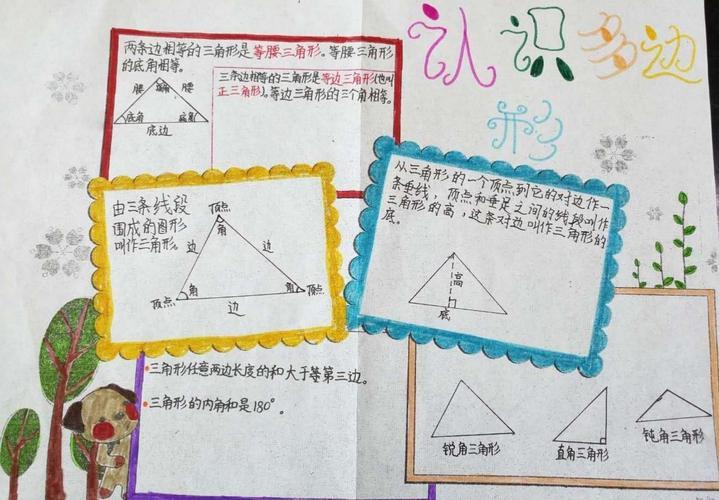 认识多边
形
两条边相等的三角形是等腰三角形。等腰三角形
的底角相等。
腰 顶角 腰
底角 底角
底边
三条边相等的三角形是等边三角形(也叫
正三角形)。等边三角形的三个角相等。
由三条线段
围成的图形
叫作三角形。
顶点
角
边 边
顶点 角 角 顶点
边
从三角形的一个顶点到它的对边作一
条垂线，顶点和垂足之间的线段叫作
三角形的高，这条对边叫作三角形的
底。
高
底
三角形任意两边长度的和大于等第三边。
三角形的内角和是180°。
锐角三角形 直角三角形 钝角三角形